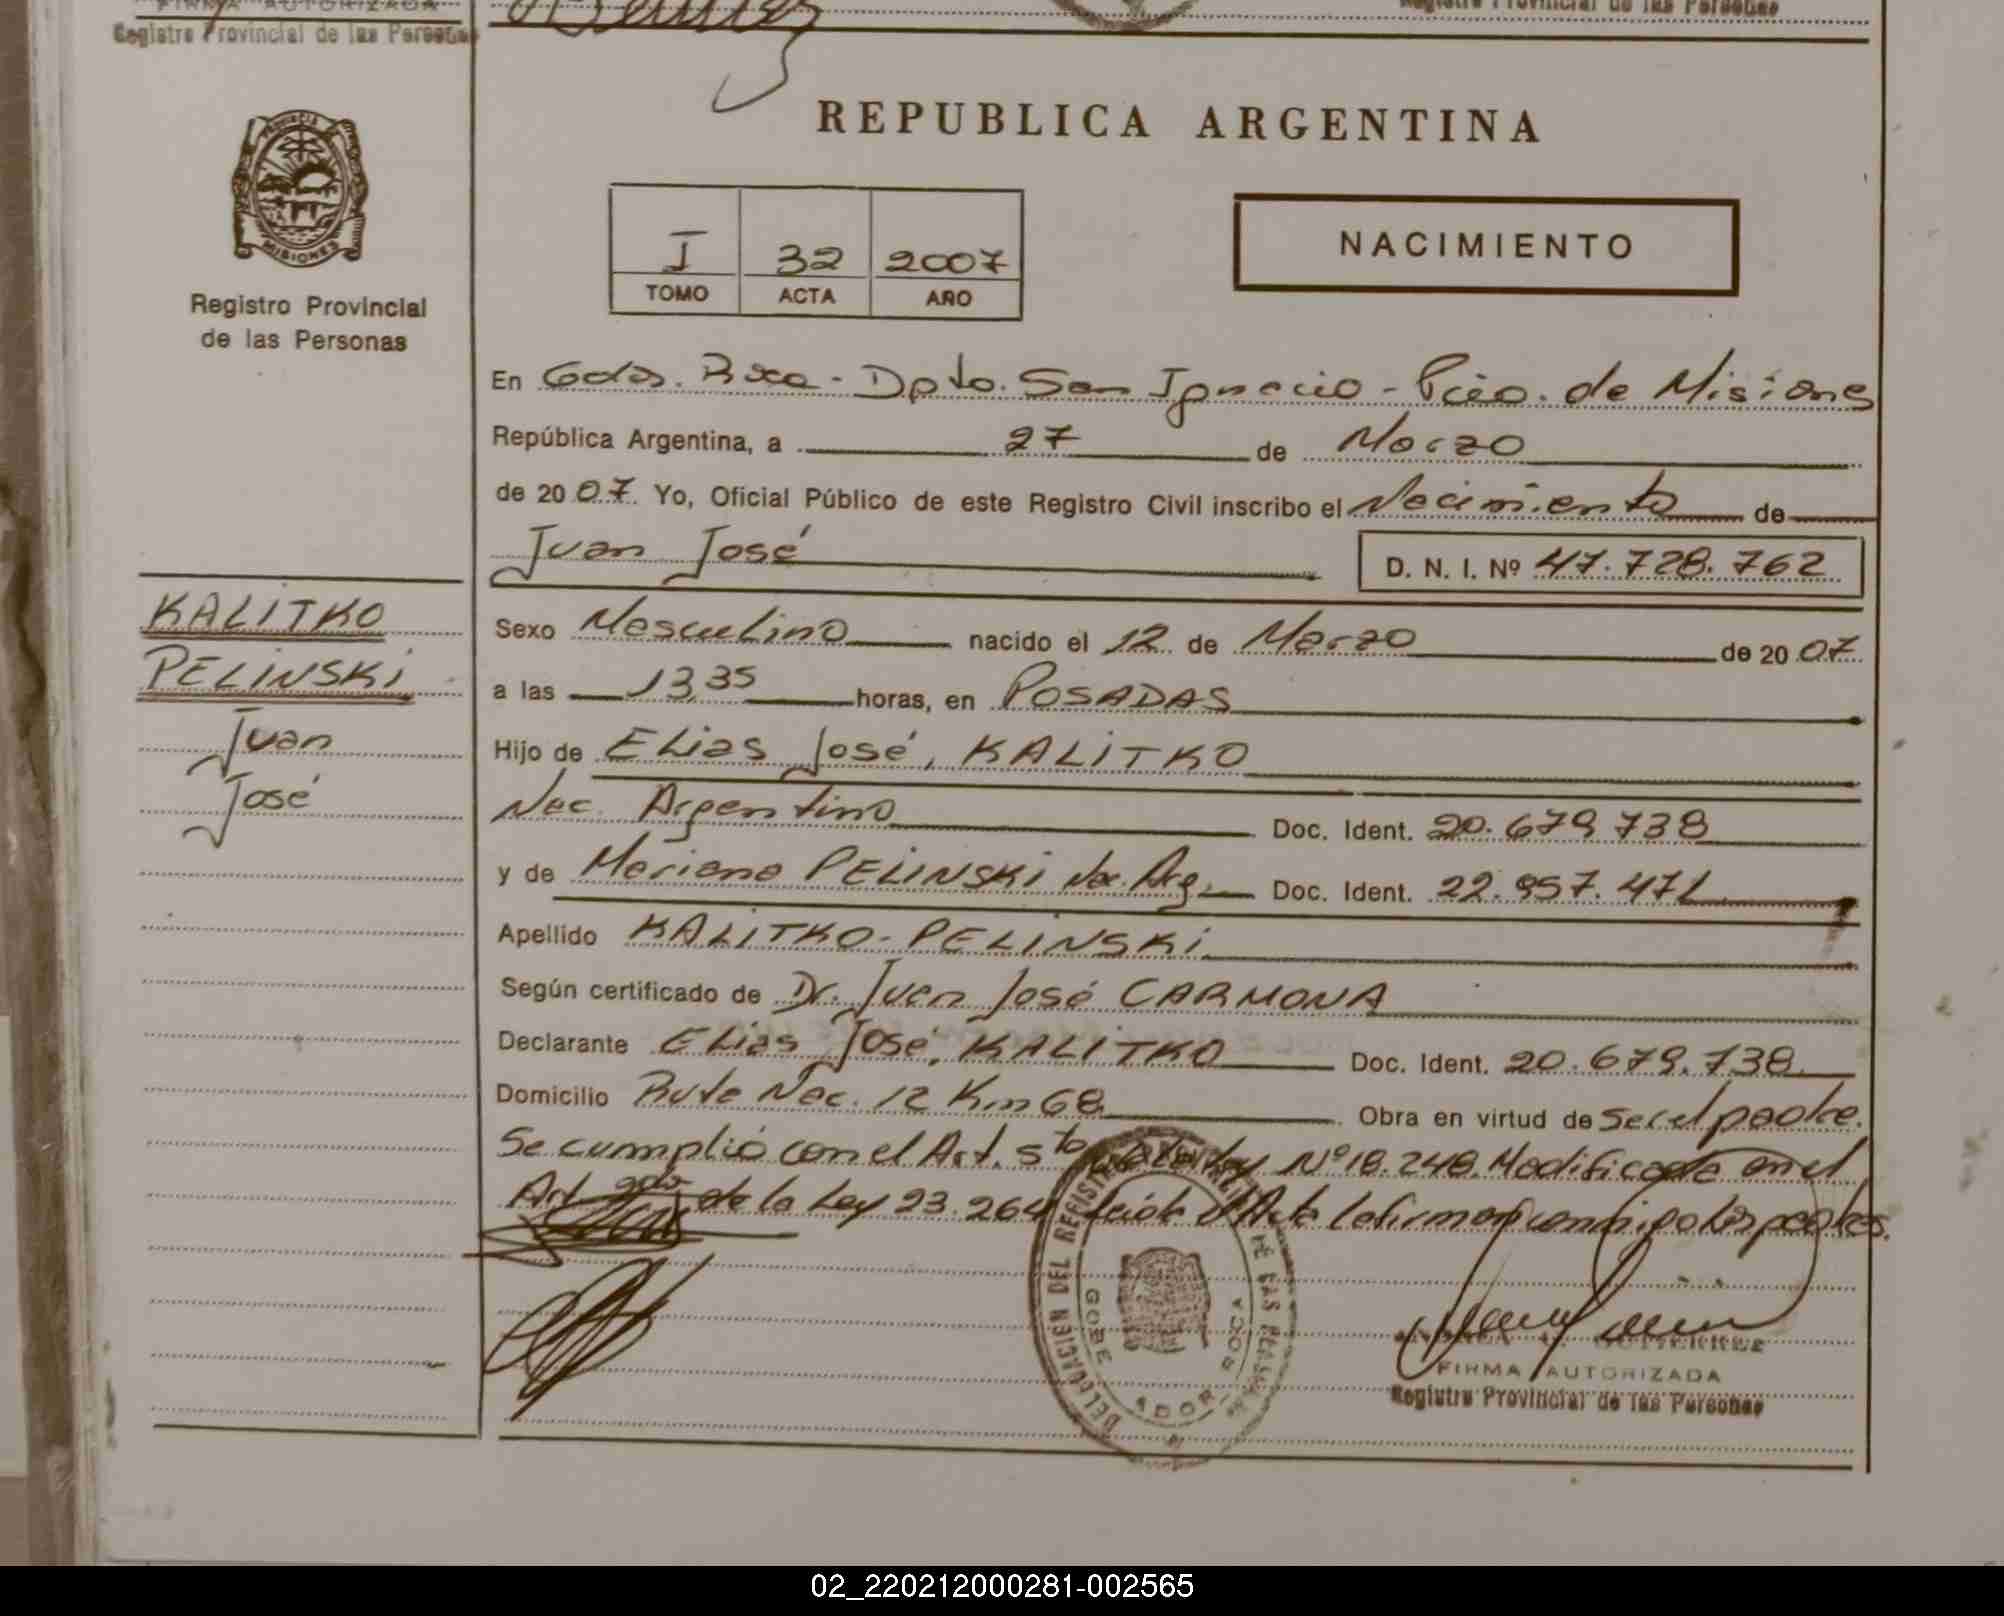 FIRMA AUTORIZADA
Registro Provincial de las Personas
Registro Provincial de las Personas
REPUBLICA ARGENTINA
PROVINCIA
MISIONES
Registro Provincial
de las Personas
I 32 2007
TOMO ACTA AÑO
NACIMIENTO
En Gdor. Roca - Dpto. San Ignacio - Pcia. de Misiones
República Argentina, a 27 de Marzo
de 2007 Yo, Oficial Público de este Registro Civil inscribo el Nacimiento de
Juan José D. N. I. Nº 47.728.762
KALITKO
PELINSKI
Juan
José
Sexo Masculino nacido el 12 de Marzo de 2007
a las 13,35 horas, en POSADAS
Hijo de Elias José, KALITKO
Nac. Argentino Doc. Ident. 20.679.738
y de Mariana PELINSKI Nac. Arg. Doc. Ident. 22.957.471
Apellido KALITKO-PELINSKI
Según certificado de Dr. Juan José CARMONA
Declarante Elias José, KALITKO Doc. Ident. 20.679.738
Domicilio Ruta Nac. 12 Km 68 Obra en virtud de ser el padre.
Se cumplió con el Art. 5to de la Ley Nº 18.248. Modificada en el
Art. de la Ley 23.264 Leída el Acta la firman conmigo los padres.
DELEGACION DEL REGISTRO PROVINCIAL DE LAS PERSONAS
GOBERNADOR ROCA
GUTIERREZ
FIRMA AUTORIZADA
Registro Provincial de las Personas
02_220212000281-002565